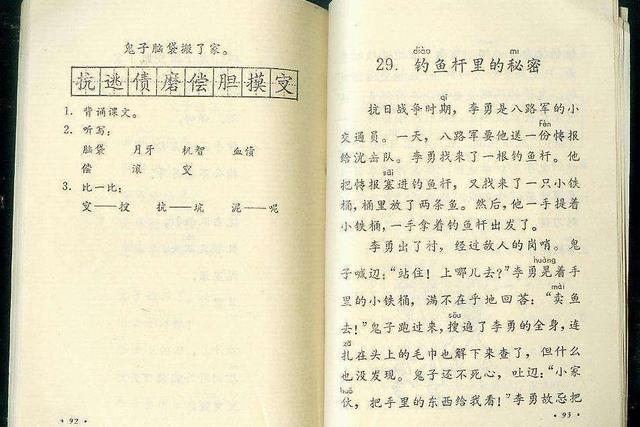 鬼子脑袋搬了家。
抗逃债磨偿胆摸
1. 背诵课文。
2. 听写：
脑袋 月牙 机智 血债
偿 滚
3. 比一比：
抗——坑 泥——呢
· 92 ·
diào mì
29. 钓鱼杆里的秘密
qī
抗日战争时期，李勇是八路军的小
fèn
交通员。一天，八路军要他送一份情报
给沋击队。李勇找来了一根钓鱼杆。他
sāi
把情报塞进钓鱼杆，又找来了一只小铁
桶，桶里放了两条鱼。然后，他一手提着
小铁桶，一手拿着钓鱼杆出发了。
李勇出了村，经过敌人的岗哨。鬼
huàng
子喊辺：“站住！上哪儿去？”李勇晃着手
mài
里的小铁桶，满不在乎地回答：“卖鱼
sōu
去！”鬼子跑过来，搜遍了李勇的全身，连
zā
扎在头上的毛巾也解下来查了，但什么
也没发现。鬼子还不死心，吐辺：“小家
huǒ
伙，把手里的东西给我看！”李勇故忍把
· 93 ·